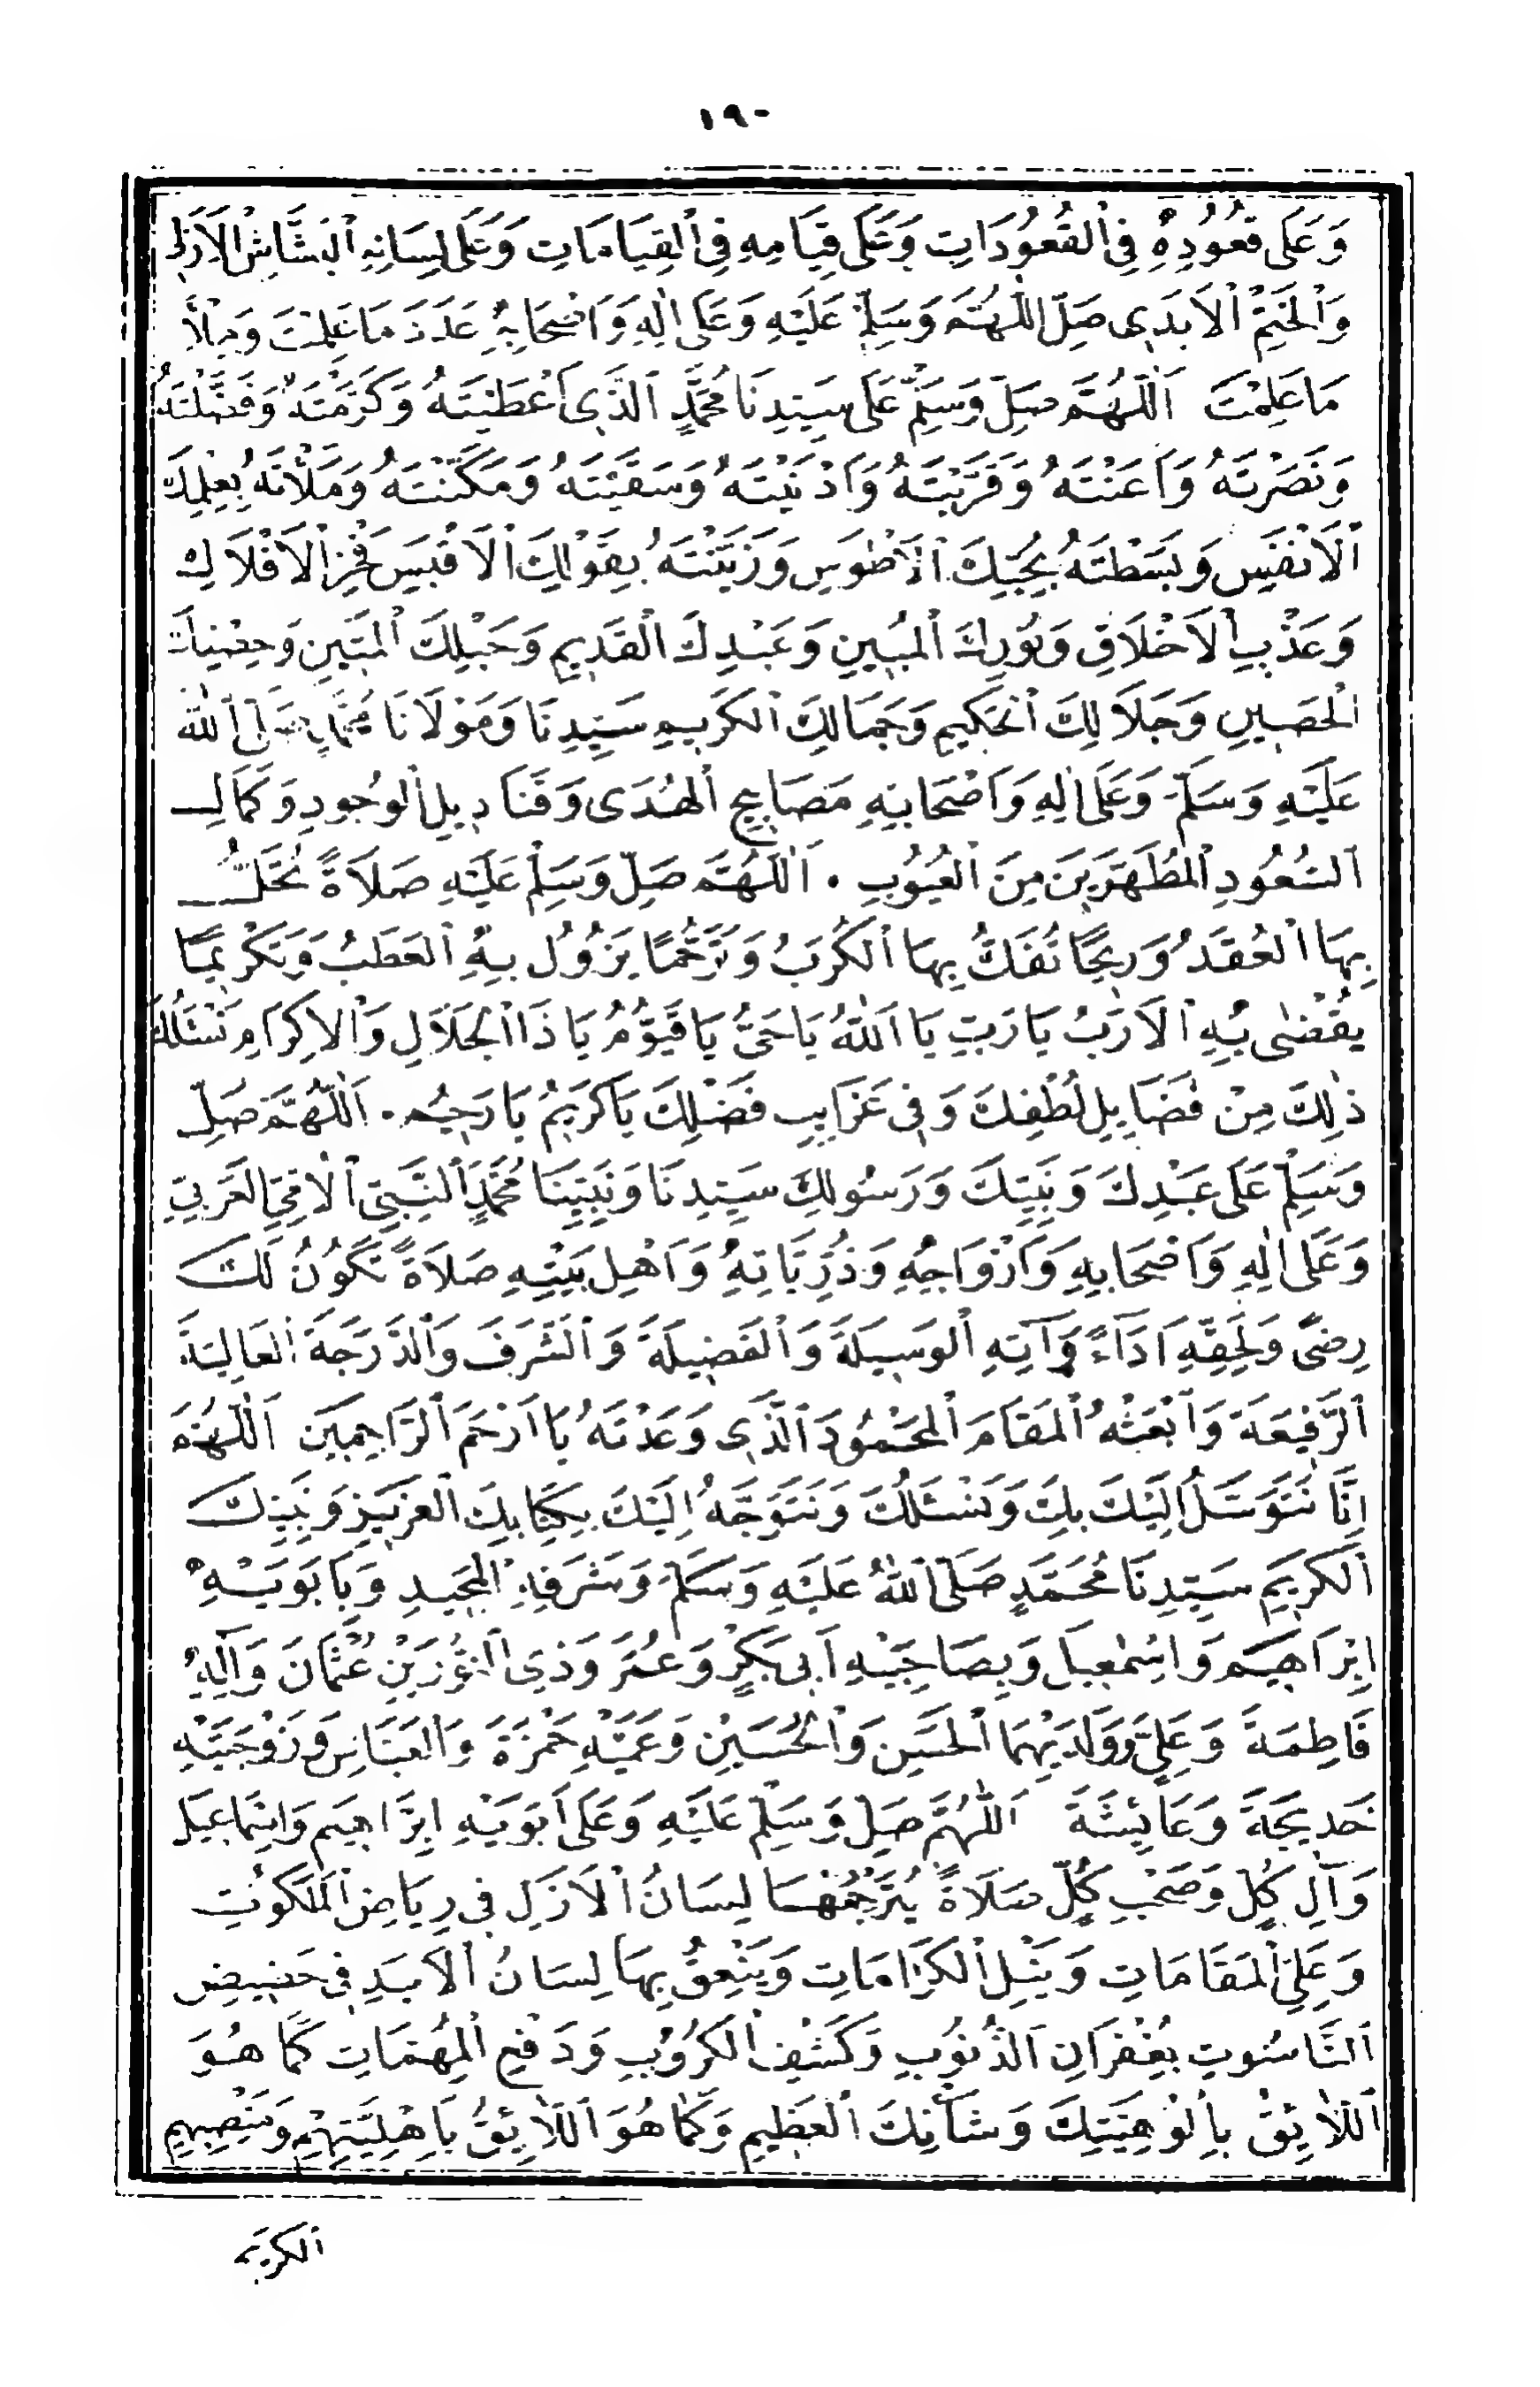 ١٩٠
وَعَلَى قُعُودِهِ فِى ٱلْقُعُودَاتِ وَعَلَى قِيَامِهِ فِى ٱلْقِيَامَاتِ وَعَلَى لِسَانِهِ ٱلْبَشَّاشِ ٱلْاَزَلِى
وَٱلْخَتْمِ ٱلْاَبَدِى صَلِّ ٱللّٰهُمَّ وَسَلِّمْ عَلَيْهِ وَعَلَى اٰلِهِ وَاَصْحَابِهِ عَدَدَ مَا عَلِمْتَ وَمِلْأَ
مَا عَلِمْتَ اَللّٰهُمَّ صَلِّ وَسَلِّمْ عَلَى سَيِّدِنَا مُحَمَّدٍ ٱلَّذِى اَعْطَيْتَهُ وَكَرَّمْتَهُ وَفَضَّلْتَهُ
وَنَصَرْتَهُ وَاَعَنْتَهُ وَقَرَّبْتَهُ وَاَدْنَيْتَهُ وَسَقَيْتَهُ وَمَكَّنْتَهُ وَمَلَأْتَهُ بِعِلْمِكَ
ٱلْاَنْفَسِ وَبَسَطْتَهُ بِحُبِّكَ ٱلْاَطْوَسِ وَزَيَّنْتَهُ بِقَوْلِكَ ٱلْاَقْبَسِ فَخْرِ ٱلْاَفْلَاكِ
وَعَذْبِ ٱلْاَخْلَاقِ وَنُورِكَ ٱلْمُبِينِ وَعَبْدِكَ ٱلْقَدِيمِ وَحَبْلِكَ ٱلْمَتِينِ وَحِصْنِكَ
ٱلْحَصِينِ وَجَلَالِكَ ٱلْحَكِيمِ وَجَمَالِكَ ٱلْكَرِيمِ سَيِّدِنَا وَمَوْلَانَا مُحَمَّدٍ صَلَّى ٱللّٰهُ
عَلَيْهِ وَسَلَّمَ وَعَلَى اٰلِهِ وَاَصْحَابِهِ مَصَابِيحِ ٱلْهُدَى وَقَنَادِيلِ ٱلْوُجُودِ وَكَمَالِ
ٱلسُّعُودِ ٱلْمُطَهَّرِينَ مِنَ ٱلْعُيُوبِ . اَللّٰهُمَّ صَلِّ وَسَلِّمْ عَلَيْهِ صَلَاةً تُحَلُّ
بِهَا ٱلْعُقَدُ وَرِيحًا تُفَكُّ بِهَا ٱلْكُرَبُ وَتَرَحُّمًا يَزُولُ بِهِ ٱلْعَطَبُ وَتَكْرِيمًا
يُقْضٰى بِهِ ٱلْاَرَبُ يَا رَبِّ يَا اَللّٰهُ يَا حَىُّ يَا قَيُّومُ يَا ذَا ٱلْجَلَالِ وَٱلْاِكْرَامِ نَسْئَلُكَ
ذٰلِكَ مِنْ فَضَائِلِ لُطْفِكَ وَفِى غَرَايِبِ فَضْلِكَ يَا كَرِيمُ يَا رَحِيمُ . اَللّٰهُمَّ صَلِّ
وَسَلِّمْ عَلَى عَبْدِكَ وَنَبِيِّكَ وَرَسُولِكَ سَيِّدِنَا وَنَبِيِّنَا مُحَمَّدٍ ٱلنَّبِىِّ ٱلْاُمِّىِّ ٱلْعَرَبِىِّ
وَعَلَى اٰلِهِ وَاَصْحَابِهِ وَاَزْوَاجِهِ وَذُرِّيَّاتِهِ وَاَهْلِ بَيْتِهِ صَلَاةً تَكُونُ لَكَ
رِضًى وَلِحَقِّهِ اَدَآءً وَآتِهِ ٱلْوَسِيلَةَ وَٱلْفَضِيلَةَ وَٱلشَّرَفَ وَٱلدَّرَجَةَ ٱلْعَالِيَةَ
ٱلرَّفِيعَةَ وَٱبْعَثْهُ ٱلْمَقَامَ ٱلْمَحْمُودَ ٱلَّذِى وَعَدْتَهُ يَا اَرْحَمَ ٱلرَّاحِمِينَ اَللّٰهُمَّ
اِنَّا نَتَوَسَّلُ اِلَيْكَ بِكَ وَنَسْئَلُكَ وَنَتَوَجَّهُ اِلَيْكَ بِكِتَابِكَ ٱلْعَزِيزِ وَنَبِيِّكَ
ٱلْكَرِيمِ سَيِّدِنَا مُحَمَّدٍ صَلَّى ٱللّٰهُ عَلَيْهِ وَسَلَّمَ وَشَرَفِهِ ٱلْمَجِيدِ وَبِاَبَوَيْهِ
اِبْرَاهِيمَ وَاِسْمٰعِيلَ وَبِصَاحِبَيْهِ اَبِى بَكْرٍ وَعُمَرَ وَذِى ٱلنُّورَيْنِ عُثْمَانَ وَآلِهِ
فَاطِمَةَ وَعَلِىٍّ وَوَلَدَيْهِمَا ٱلْحَسَنِ وَٱلْحُسَيْنِ وَعَمَّيْهِ حَمْزَةَ وَٱلْعَبَّاسِ وَزَوْجَتَيْهِ
خَدِيجَةَ وَعَائِشَةَ اَللّٰهُمَّ صَلِّ وَسَلِّمْ عَلَيْهِ وَعَلَى اَبَوَيْهِ اِبْرَاهِيمَ وَاِسْمَاعِيلَ
وَآلِ كُلٍّ وَصَحْبِ كُلٍّ صَلَاةً يُتَرْجِمُهَا لِسَانُ ٱلْاَزَلِ فِى رِيَاضِ ٱلْمَلَكُوتِ
وَعَلِىِّ ٱلْمَقَامَاتِ وَنَيْلِ ٱلْكَرَامَاتِ وَيَنْعِقُ بِهَا لِسَانُ ٱلْاَبَدِ فِى حَضِيضِ
ٱلنَّاسُوتِ بِغُفْرَانِ ٱلذُّنُوبِ وَكَشْفِ ٱلْكُرُوبِ وَدَفْعِ ٱلْمُهِمَّاتِ كَمَا هُوَ
ٱللَّائِقُ بِاُلُوْهِيَّتِكَ وَشَأْنِكَ ٱلْعَظِيمِ وَكَمَا هُوَ ٱللَّائِقُ بِاَهْلِيَّتِهِمْ وَمَنْصِبِهِمِ
ٱلْكَرِيمِ